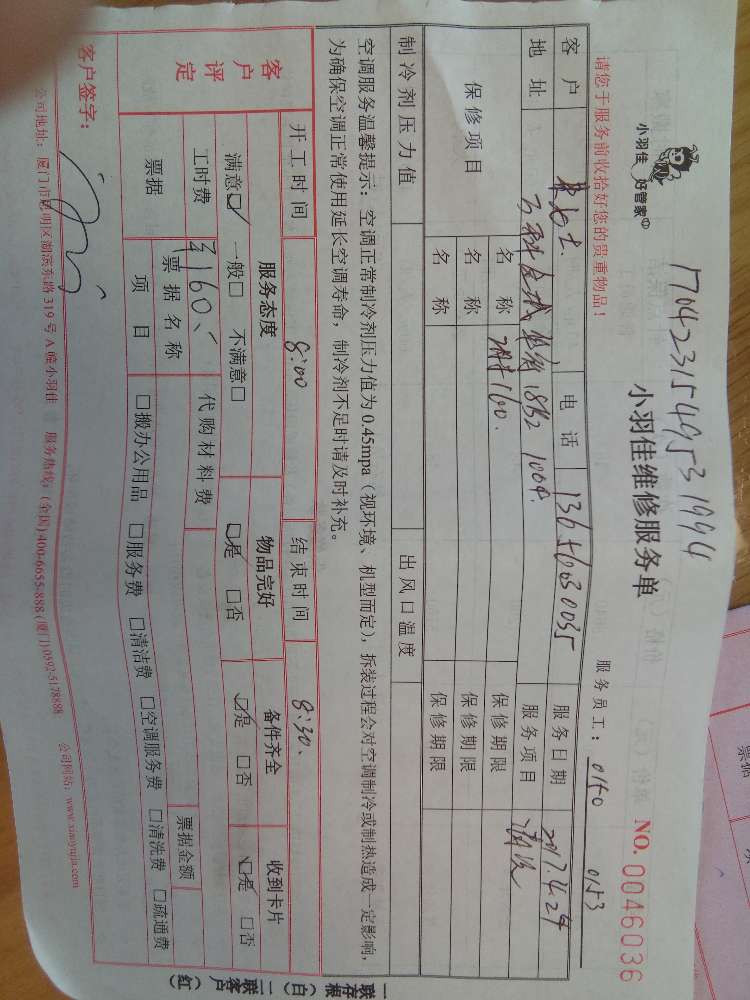 1704231549531994
小羽佳 好管家
小羽佳维修服务单
NO. 0046036
请您于服务前收拾好您的贵重物品！
服务员工： 0140 0153
客户 女士 电话 13656030035 服务日期 2017.4.24
地址 万科金域华府 18#2 1004 服务项目 清洗
保修项目 名称 保修期限
名称 保修期限
名称 保修期限
制冷剂压力值 出风口温度
空调服务温馨提示：空调正常制冷剂压力值为0.45mpa（视环境、机型而定），拆装过程会对空调制冷或制热造成一定影响，
为确保空调正常使用延长空调寿命，制冷剂不足时请及时补充。
客户评定
开工时间 8:00 结束时间 8:30
服务态度 物品完好 备件齐全 收到卡片
满意☑ 一般□ 不满意□ ☑是 □否 ☑是 □否 ☑是 □否
工时费 ¥160 代购材料费
票据 票据名称 票据金额
项目 □搬办公用品 □服务费 □清洁费 □空调服务费 □清洗费 □疏通费
客户签字：
公司地址：厦门市思明区湖滨东路319号A幢小羽佳 服务热线：（全国）400-6655-888（厦门）0592-5178888 公司网站：www.xiaoyujia.com
一联存根（白）二联客户（红）